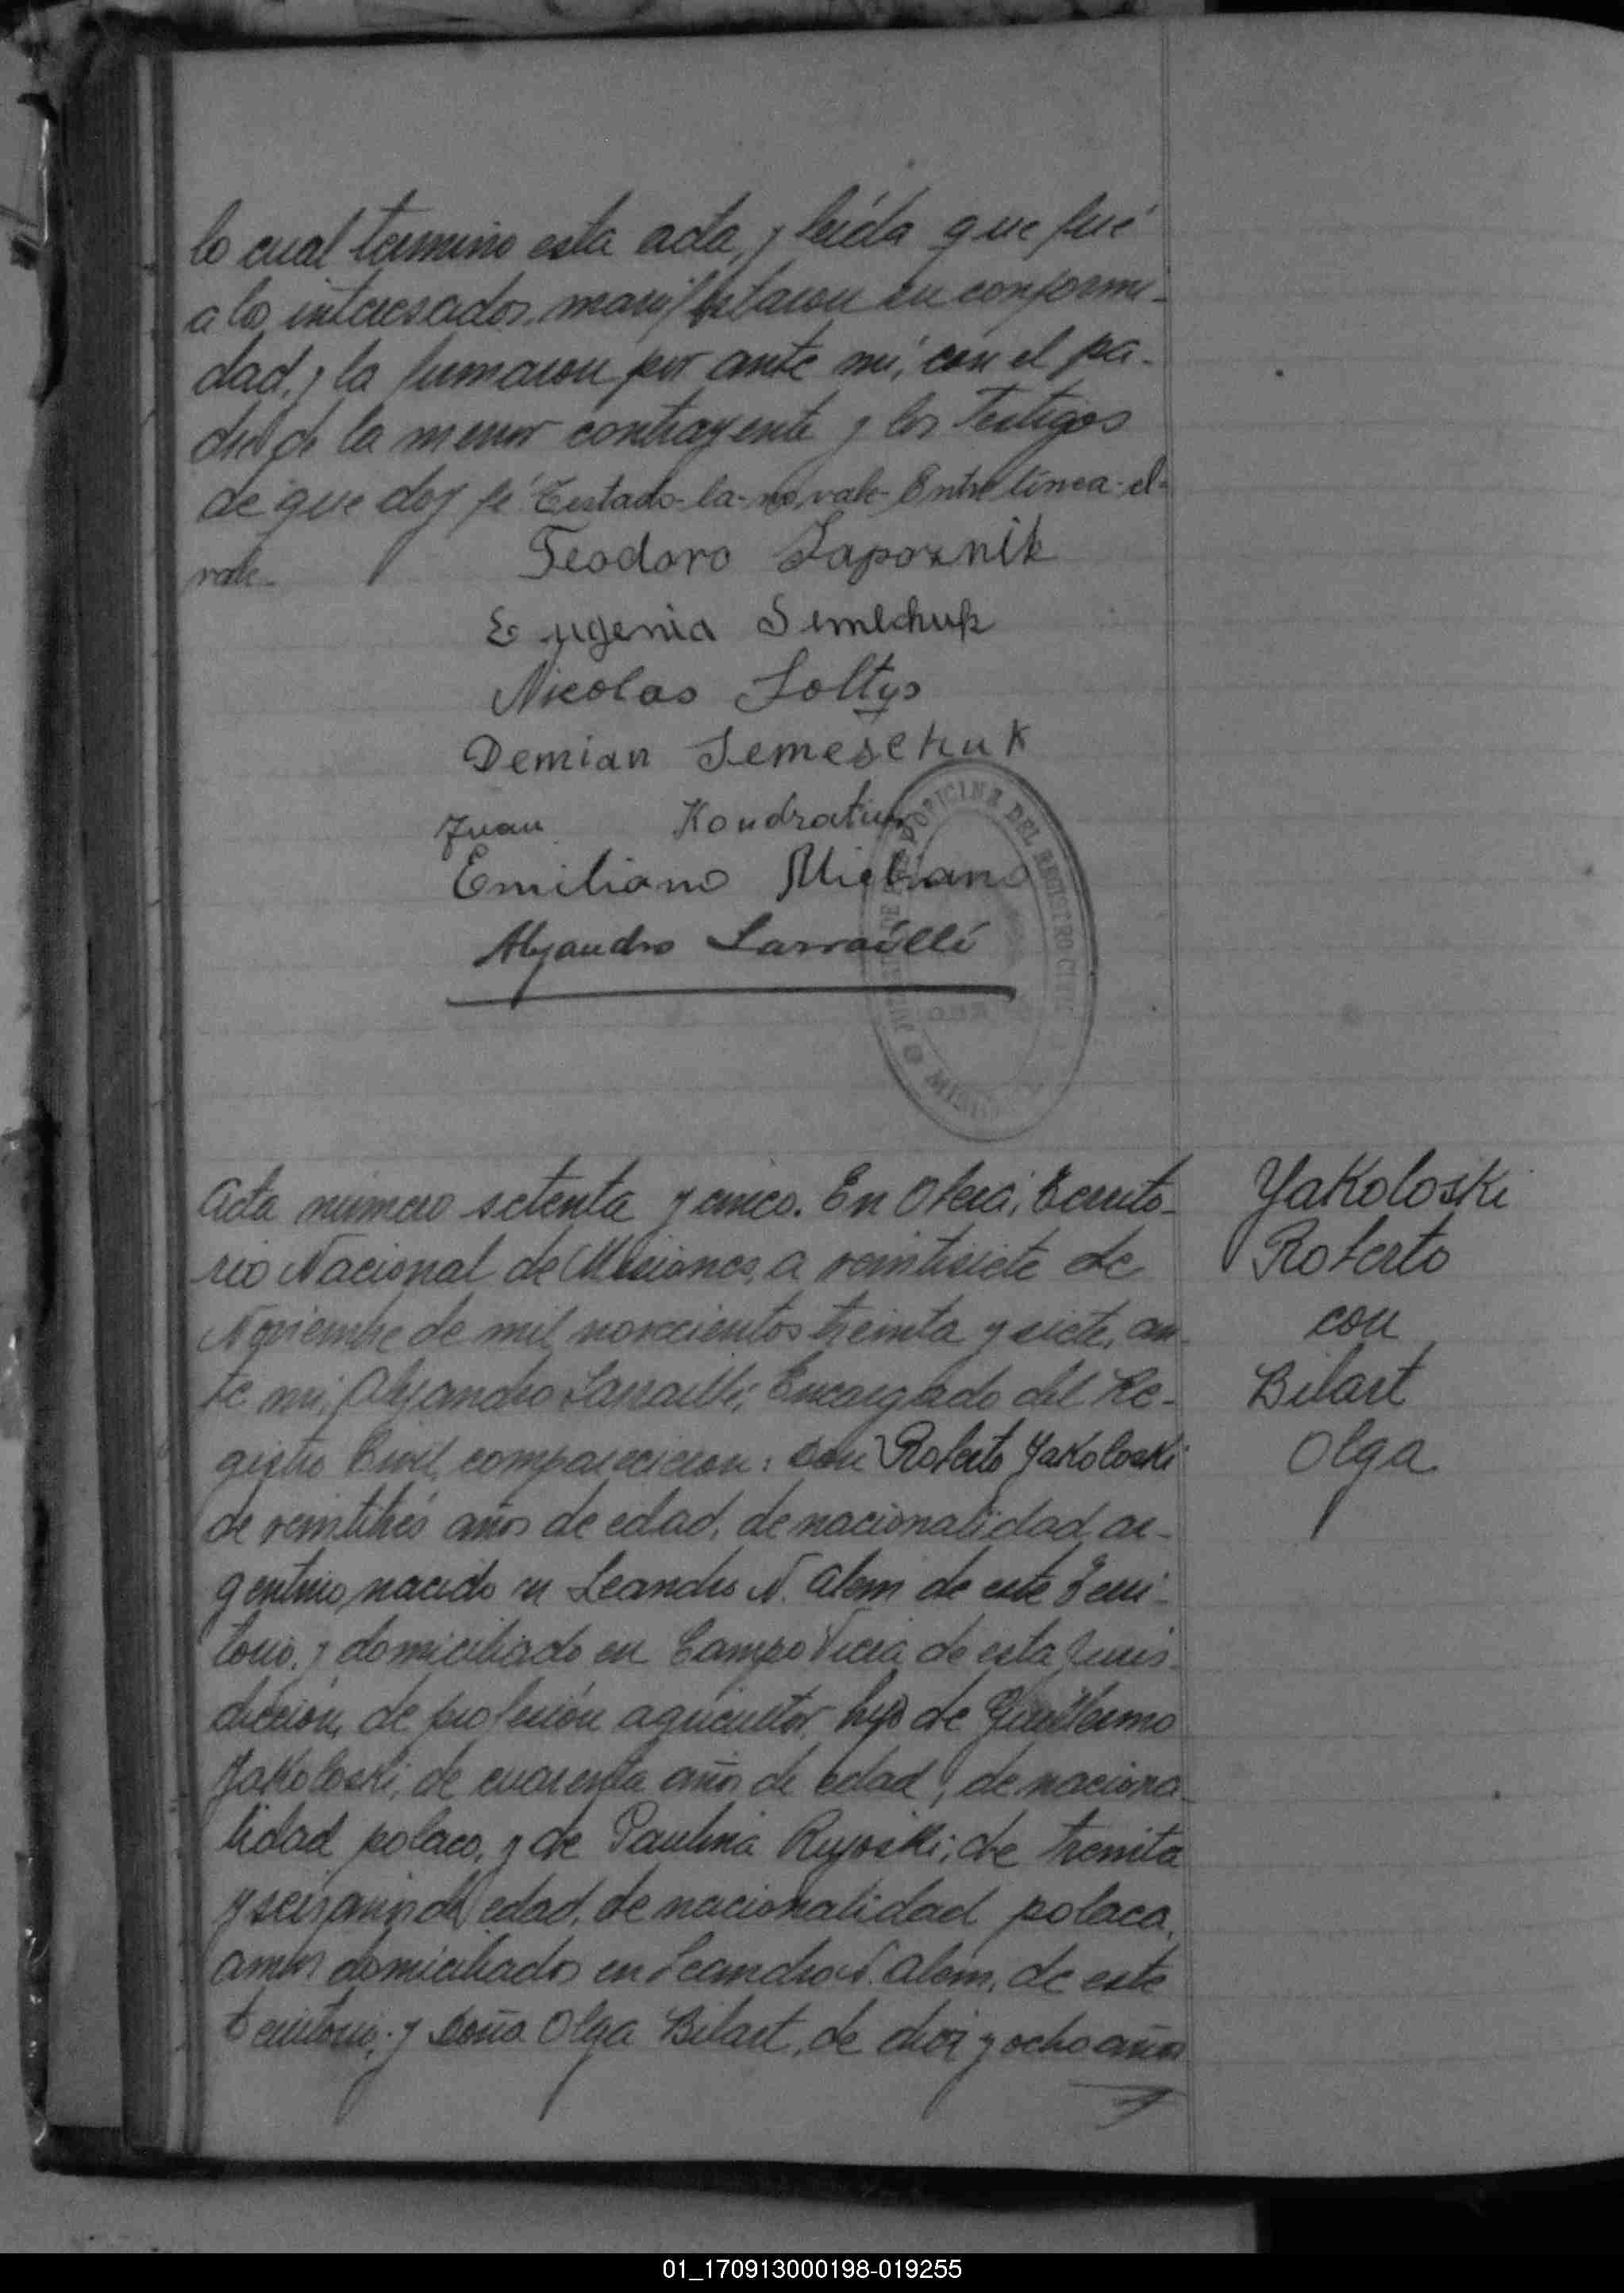 lo cual termino esta acta, y leída que fué
a los interesados, manifestaron su conformi-
dad, y la firmaron por ante mí, con el pa-
dre de la menor contrayente y los testigos
de que doy fé. Testado-la-no vale-Entre línea-el-
vale-
Teodoro Sapoznik
Eugenia
Nicolas Soltys
Demian Semeschuk
Juan
Emiliano
Alejandro Larraülli
OFICINA DEL REGISTRO CIVIL
Acta número setenta y cinco. En Oberá, Territo-
rio Nacional de Misiones, a veintisiete de
Noviembre de mil novecientos treinta y siete, an-
te mi, Alejandro Larraülli, Encargado del Re-
gistro Civil, comparecieron: Don Roberto Yakoloski
de veintitrés años de edad, de nacionalidad ar-
gentino, nacido en Leandro N. Alem de este Terri-
torio, y domiciliado en Campo Viera de esta Juris-
dicción, de profesión agricultor, hijo de Guillermo
Yakoloski, de cuarenta años de edad, de naciona-
lidad polaco, y de Paulina de treinta
y seis años de edad, de nacionalidad polaca,
ambos domiciliados en Leandro N. Alem, de este
territorio; y Doña Olga Bilart, de diez y ocho años
Yakoloski
Roberto
con
Bilart
Olga
01_170913000198-019255